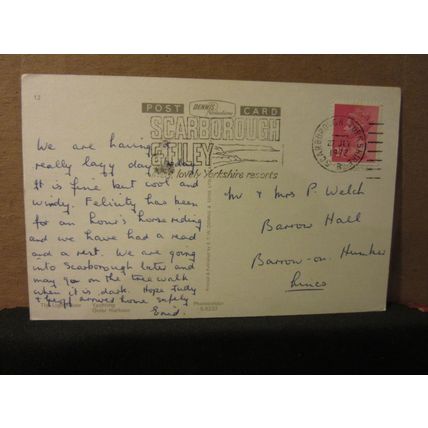 12
POST DENNIS Productions CARD
SCARBOROUGH
& FILEY
lovely Yorkshire resorts
SCARBOROUGH YORKSHIRE
1972
We are having a
really lazy day today.
It is fine but cool and
windy. Felicity has been
for an hour's horse riding
and we have had a read
and a rest. We are going
into Scarborough later and
may go on the tree walk
when it is dark. Hope Judy
& Geoff arrived home safely.
Enid.
Mr & Mrs P. Welch
Barrow Hall
Barrow-on-Humber
Lincs
Yachting
Outer Harbour